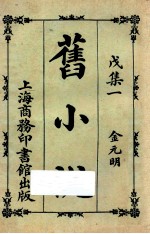 戊集一 金元明
舊小說
上海商務印書館出版